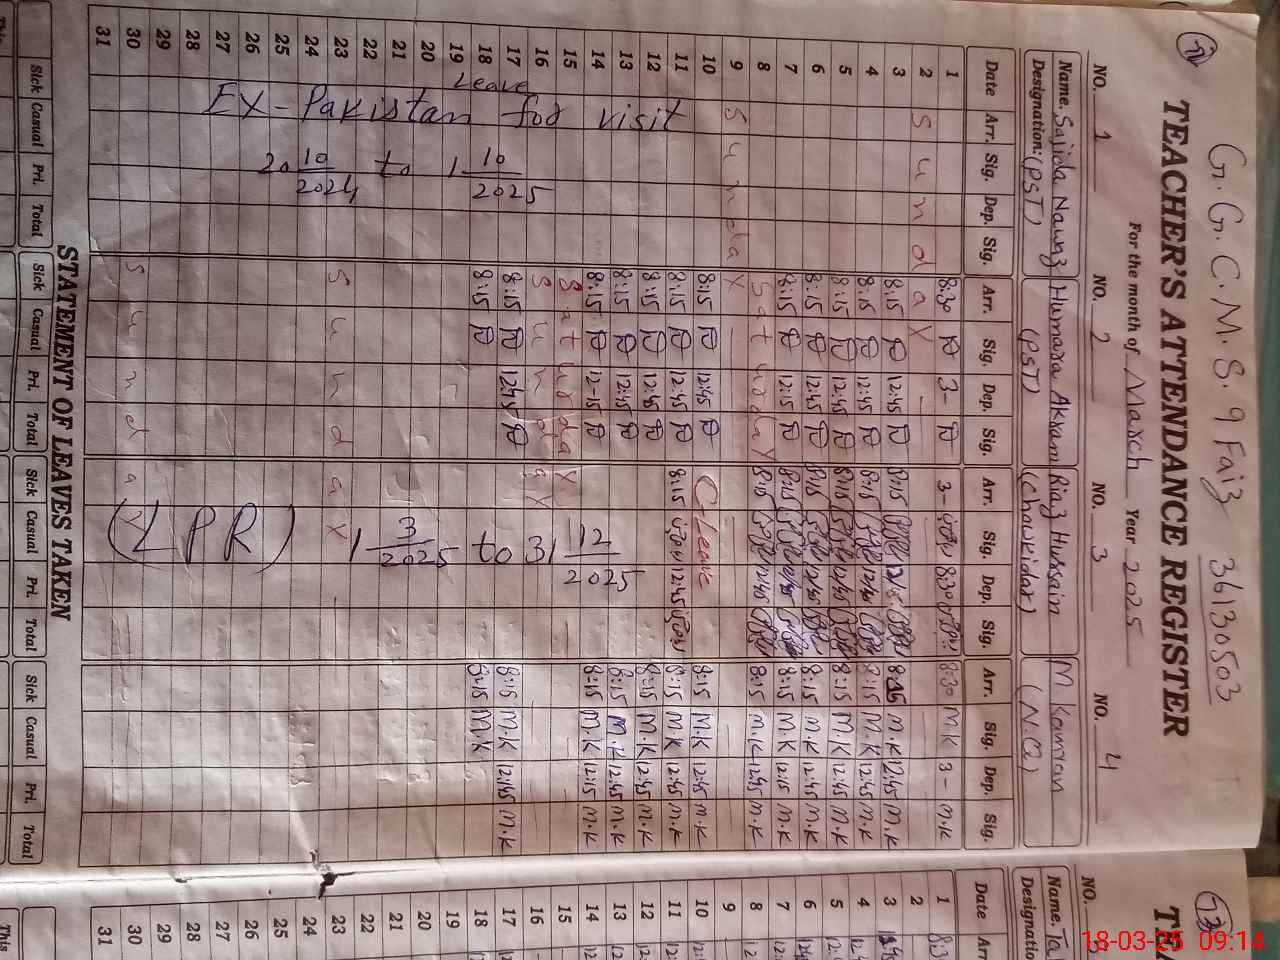 G.G.C.M.S. 9 Faiz 36130503
TEACHER'S ATTENDANCE REGISTER
For the month of March Year 2025
NO. 1 NO. 2 NO. 3 NO. 4
Name. Sajida Nawaz Humara Akram Riaz Hussain M. Kamran
Designation: (PST) (PST) (Chowkidar) (N.Q)
Date Arr. Sig. Dep. Sig. Arr. Sig. Dep. Sig. Arr. Sig. Dep. Sig. Arr. Sig. Dep. Sig.
1 8:30 3- 3- 8:30 8:30 M.K 3- M.K
2 Sunday
3 8:15 12:45 8:15 8:15 M.K 12:45 M.K
4 8:15 12:45 8:15 12:45 8:15 M.K 12:45 M.K
5 8:15 12:45 8:15 12:45 8:15 M.K 12:45 M.K
6 8:15 12:45 8:15 12:45 8:15 M.K 12:45 M.K
7 8:15 12:15 8:15 8:15 M.K 12:15 M.K
8 Saturday 8:15 12:45 8:15 M.K 12:45 M.K
9 Sunday
10 8:15 12:45 C-leave 8:15 M.K 12:45 M.K
11 8:15 12:45 8:15 12:45 8:15 M.K 12:45 M.K
12 8:15 12:45 8:15 M.K 12:45 M.K
13 8:15 12:45 8:15 M.K 12:45 M.K
14 8:15 12:15 8:15 M.K 12:15 M.K
15 Saturday
16 Sunday
17 8:15 12:45 8:15 M.K 12:45 M.K
18 8:15 8:15 M.K
19
20
21
22
23 Sunday
24
25
26
27
28
29
30 Sunday
31
Leave
EX-Pakistan for visit
20 10/2024 to 1 10/2025
(LPR) 1 3/2025 to 31 12/2025
STATEMENT OF LEAVES TAKEN
Sick Casual Pri. Total Sick Casual Pri. Total Sick Casual Pri. Total Sick Casual Pri. Total
This
TEA
NO.
Name. Ta
Designatio
Date Arr
1 8:3
2
3
4
5
6
7
8
9
10
11
12
13
14
15
16
17
18
19
20
21
22
23
24
25
26
27
28
29
30
31
This
18-03-25 09:14